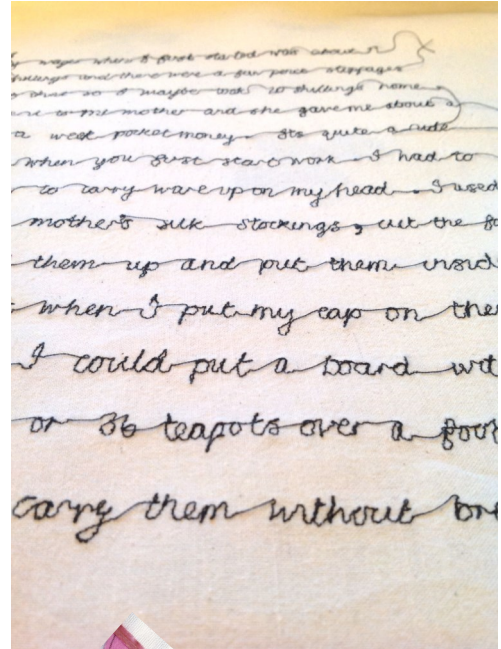 wages when I first started was about
shillings and there were a few pence stoppages
so I maybe took 20 shillings home
to my mother and she gave me about
a week pocket money. Its quite a rude
when you first start work. I had to
to carry ware up on my head. I used
mother's silk stockings, cut the fo
them up and put them insid
when I put my cap on the
I could put a board wit
or 36 teapots over a foot
carry them without bre